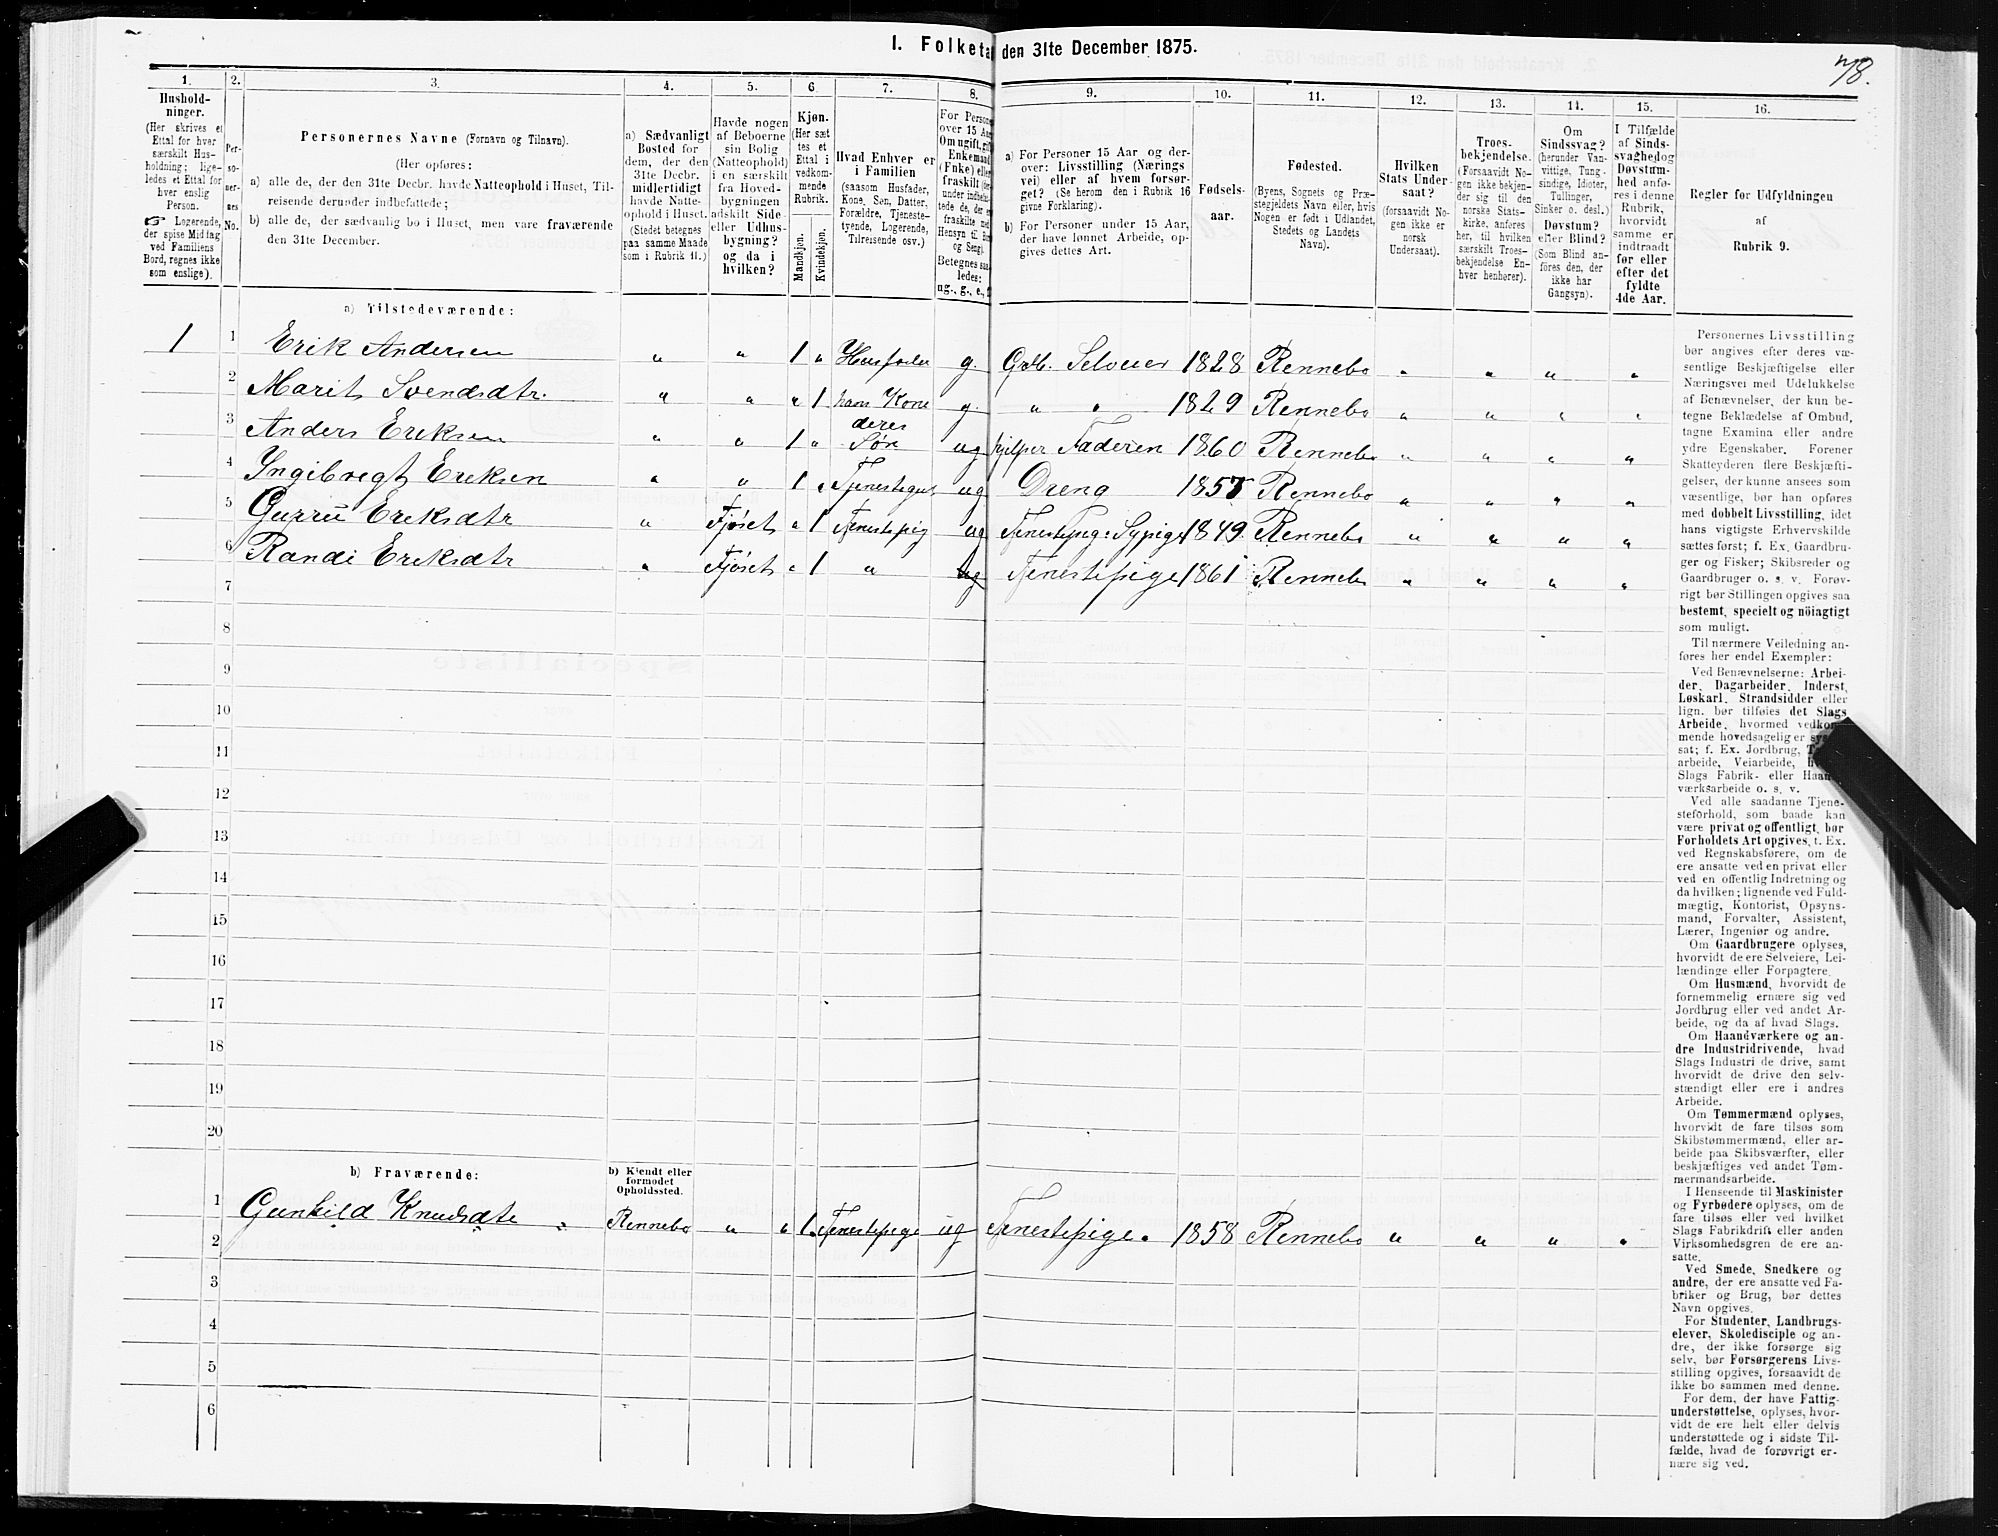 I. Folketa den 31te December 1875.
78.
1. 2. 3. 4. 5. 6. 7. 8. 9. 10. 11. 12. 13. 14. 15. 16.
Hushold-
ninger.
(Her skrives et
Ettal for hver
særskilt Hus-
holdning; lige-
ledes et Ettal for
hver enslig
Person.
☞ Logerende,
der spise Middag
ved Familiens
Bord, regnes ikke
som enslige).
Per-
so-
ner-
nes
No.
Personernes Navne (Fornavn og Tilnavn).
(Her opføres:
a) alle de, der den 31te Decbr. havde Natteophold i Huset, Til-
reisende derunder indbefattede;
b) alle de, der sædvanlig bo i Huset, men vare fraværende
den 31te December.
a) Sædvanligt
Bosted for
dem, der den
31te Decbr.
midlertidigt
havde Natte-
ophold i Huset.
(Stedet betegnes
paa samme Maade
som i Rubrik 11.)
Havde nogen
af Beboerne
sin Bolig
(Natteophold)
i en særskilt
fra Hoved-
bygningen
adskilt Side-
eller Udhus-
bygning?
og da i
hvilken?
Kjøn.
(Her sæt-
tes et
Ettal i
vedkom-
mende
Rubrik.
Mandkjøn.
Kvindekjøn.
Hvad Enhver er
i Familien
(saasom Husfader,
Kone, Søn, Datter,
Forældre, Tjeneste-
tyende, Logerende,
Tilreisende osv.)
For Person
over 15 Aar
Om ugift, gift
Enkemand
(Enke) eller
fraskilt (
under indbefat-
tede de, der er
fraskilte med
Hensyn til Bo
og Seng).
Betegnes saa-
ledes:
ug., g., e., f
a) For Personer 15 Aar og der-
over: Livsstilling (Nærings-
vei) eller af hvem forsør-
get? (Se herom den i Rubrik 16
givne Forklaring).
b) For Personer under 15 Aar,
der have lønnet Arbeide, op-
gives dettes Art.
Fødsels-
aar.
Fødested.
(Byens, Sognets og Præ-
stegjeldets Navn eller, hvis
Nogen er født i Udlandet,
Stedets og Landets
Navn).
Hvilken
Stats Under-
saat?
(forsaavidt No-
gen ikke er
norsk
Undersaat).
Troes-
bekjendelse.
(Forsaavidt No-
gen ikke bekjen-
der sig til den
norske Stats-
kirke, anføres
her, til hvilken
særskilt Troes-
bekjendelse En-
hver henhører).
Om
Sindssvag?
(herunder Van-
vittige, Tung-
sindige, Idioter,
Tullinger,
Sinker o. desl.)
Døvstum?
eller Blind?
(Som Blind an-
føres den, der
ikke har
Gangsyn).
I Tilfælde
af Sinds-
svaghed og
Døvstum-
hed anfø-
res i denne
Rubrik,
hvorvidt
samme er
indtraadt
før eller
efter det
fyldte
4de Aar.
Regler for Udfyldningen
af
Rubrik 9.
a) Tilstedeværende:
1 1 Erik Andersen „ „ 1 „ Husfader g. Gdb. Selveier 1828 Rennebo „ „ „ „
2 Marit Svendsdtr. „ „ „ 1 hans Kone g. „ „ 1829 Rennebo „ „ „ „
3 Anders Eriksen „ „ 1 „ deres Søn ug hjelper Faderen 1860 Rennebo „ „ „ „
4 Yngibregt Eriksen „ „ 1 „ ug Dreng Rennebo „ „ „ „
5 Gurru Eriksdtr „ Fjöset „ 1 Tjenestepig ug Sypige 1849 Rennebo „ „ „ „
6 Randi Eriksdtr „ Fjöset „ 1 „ ug Tjenestepige 1861 Rennebo „ „ „ „
7
8
9
10
11
12
13
14
15
16
17
18
19
20
b) Fraværende:
b) Kjendt eller
formodet
Opholdssted.
1 Gunhild Knudsdtr „ Rennebo „ „ 1 Tjenestepige ug Tjenestepige. 1858 Rennebo „ „ „ „
2
3
4
5
6
Personernes Livsstilling
bør angives efter deres væ-
sentlige Beskjæftigelse eller
Næringsvei med Udelukkelse
af Benævnelser, der kun be-
tegne Beklædelse af Ombud,
tagne Examina eller andre
ydre Egenskaber. Forener
Skatteyderen flere Beskjæfti-
gelser, der kunne ansees som
væsentlige, bør han opføres
med dobbelt Livsstilling, idet
hans vigtigste Erhvervskilde
sættes først; f. Ex. Gaardbru-
ger og Fisker; Skibsreder og
Gaardbruger o. s. v. Forøv-
rigt bør Stillingen opgives saa
bestemt, specielt og nöiagtigt
som muligt.
Til nærmere Veiledning an-
føres her endel Exempler:
Ved Benævnelserne: Arbei-
der, Dagarbeider, Inderst,
Løskarl, Strandsidder eller
lign. bør tilføies det Slags
Arbeide, hvormed vedkom-
mende hovedsagelig er sys
sat; f. Ex. Jordbrug, T
arbeide, Veiarbeide, h
Slags Fabrik- eller Haand-
værksarbeide o. s. v.
Ved alle saadanne Tjene-
steforhold, som baade kan
være privat og offentligt, bør
Forholdets Art opgives, t. Ex.
ved Regnskabsførere, om de
ere ansatte ved en privat eller
ved en offentlig Indretning og
da hvilken; lignende ved Fuld-
mægtig, Kontorist, Opsyns-
mand, Forvalter, Assistent,
Lærer, Ingeniør og andre.
Om Gaardbrugere oplyses,
hvorvidt de ere Selveiere, Lei-
lændinge eller Forpagtere.
Om Husmænd, hvorvidt de
fornemmelig ernære sig ved
Jordbrug eller ved andet Ar-
beide, og da af hvad Slags.
Om Haandværkere og an-
dre Industridrivende, hvad
Slags Industri de drive, samt
hvorvidt de drive den selv-
stændigt eller ere i andres
Arbeide.
Om Tømmermænd oplyses,
hvorvidt de fare tilsøs som
Skibstømmermænd, eller ar-
beide paa Skibsværfter, eller
beskjæftiges ved andet Tøm-
mermandsarbeide.
I Henseende til Maskinister
og Fyrbødere oplyses, om de
fare tilsøs eller ved hvilket
Slags Fabrikdrift eller anden
Virksomhedsgren de ere an-
satte.
Ved Smede, Snedkere og
andre, der ere ansatte ved Fa-
briker og Brug, bør dettes
Navn opgives.
For Studenter, Landbrugs-
elever, Skoledisciple og an-
dre, der ikke forsørge sig
selv, bør Forsørgerens Livs-
stilling opgives, forsaavidt de
ikke bo sammen med denne.
For dem, der have Fattig-
understøttelse, oplyses, hvor-
vidt de ere helt eller delvis
understøttede og i sidste Til-
fælde, hvad de forøvrigt er-
nære sig ved.